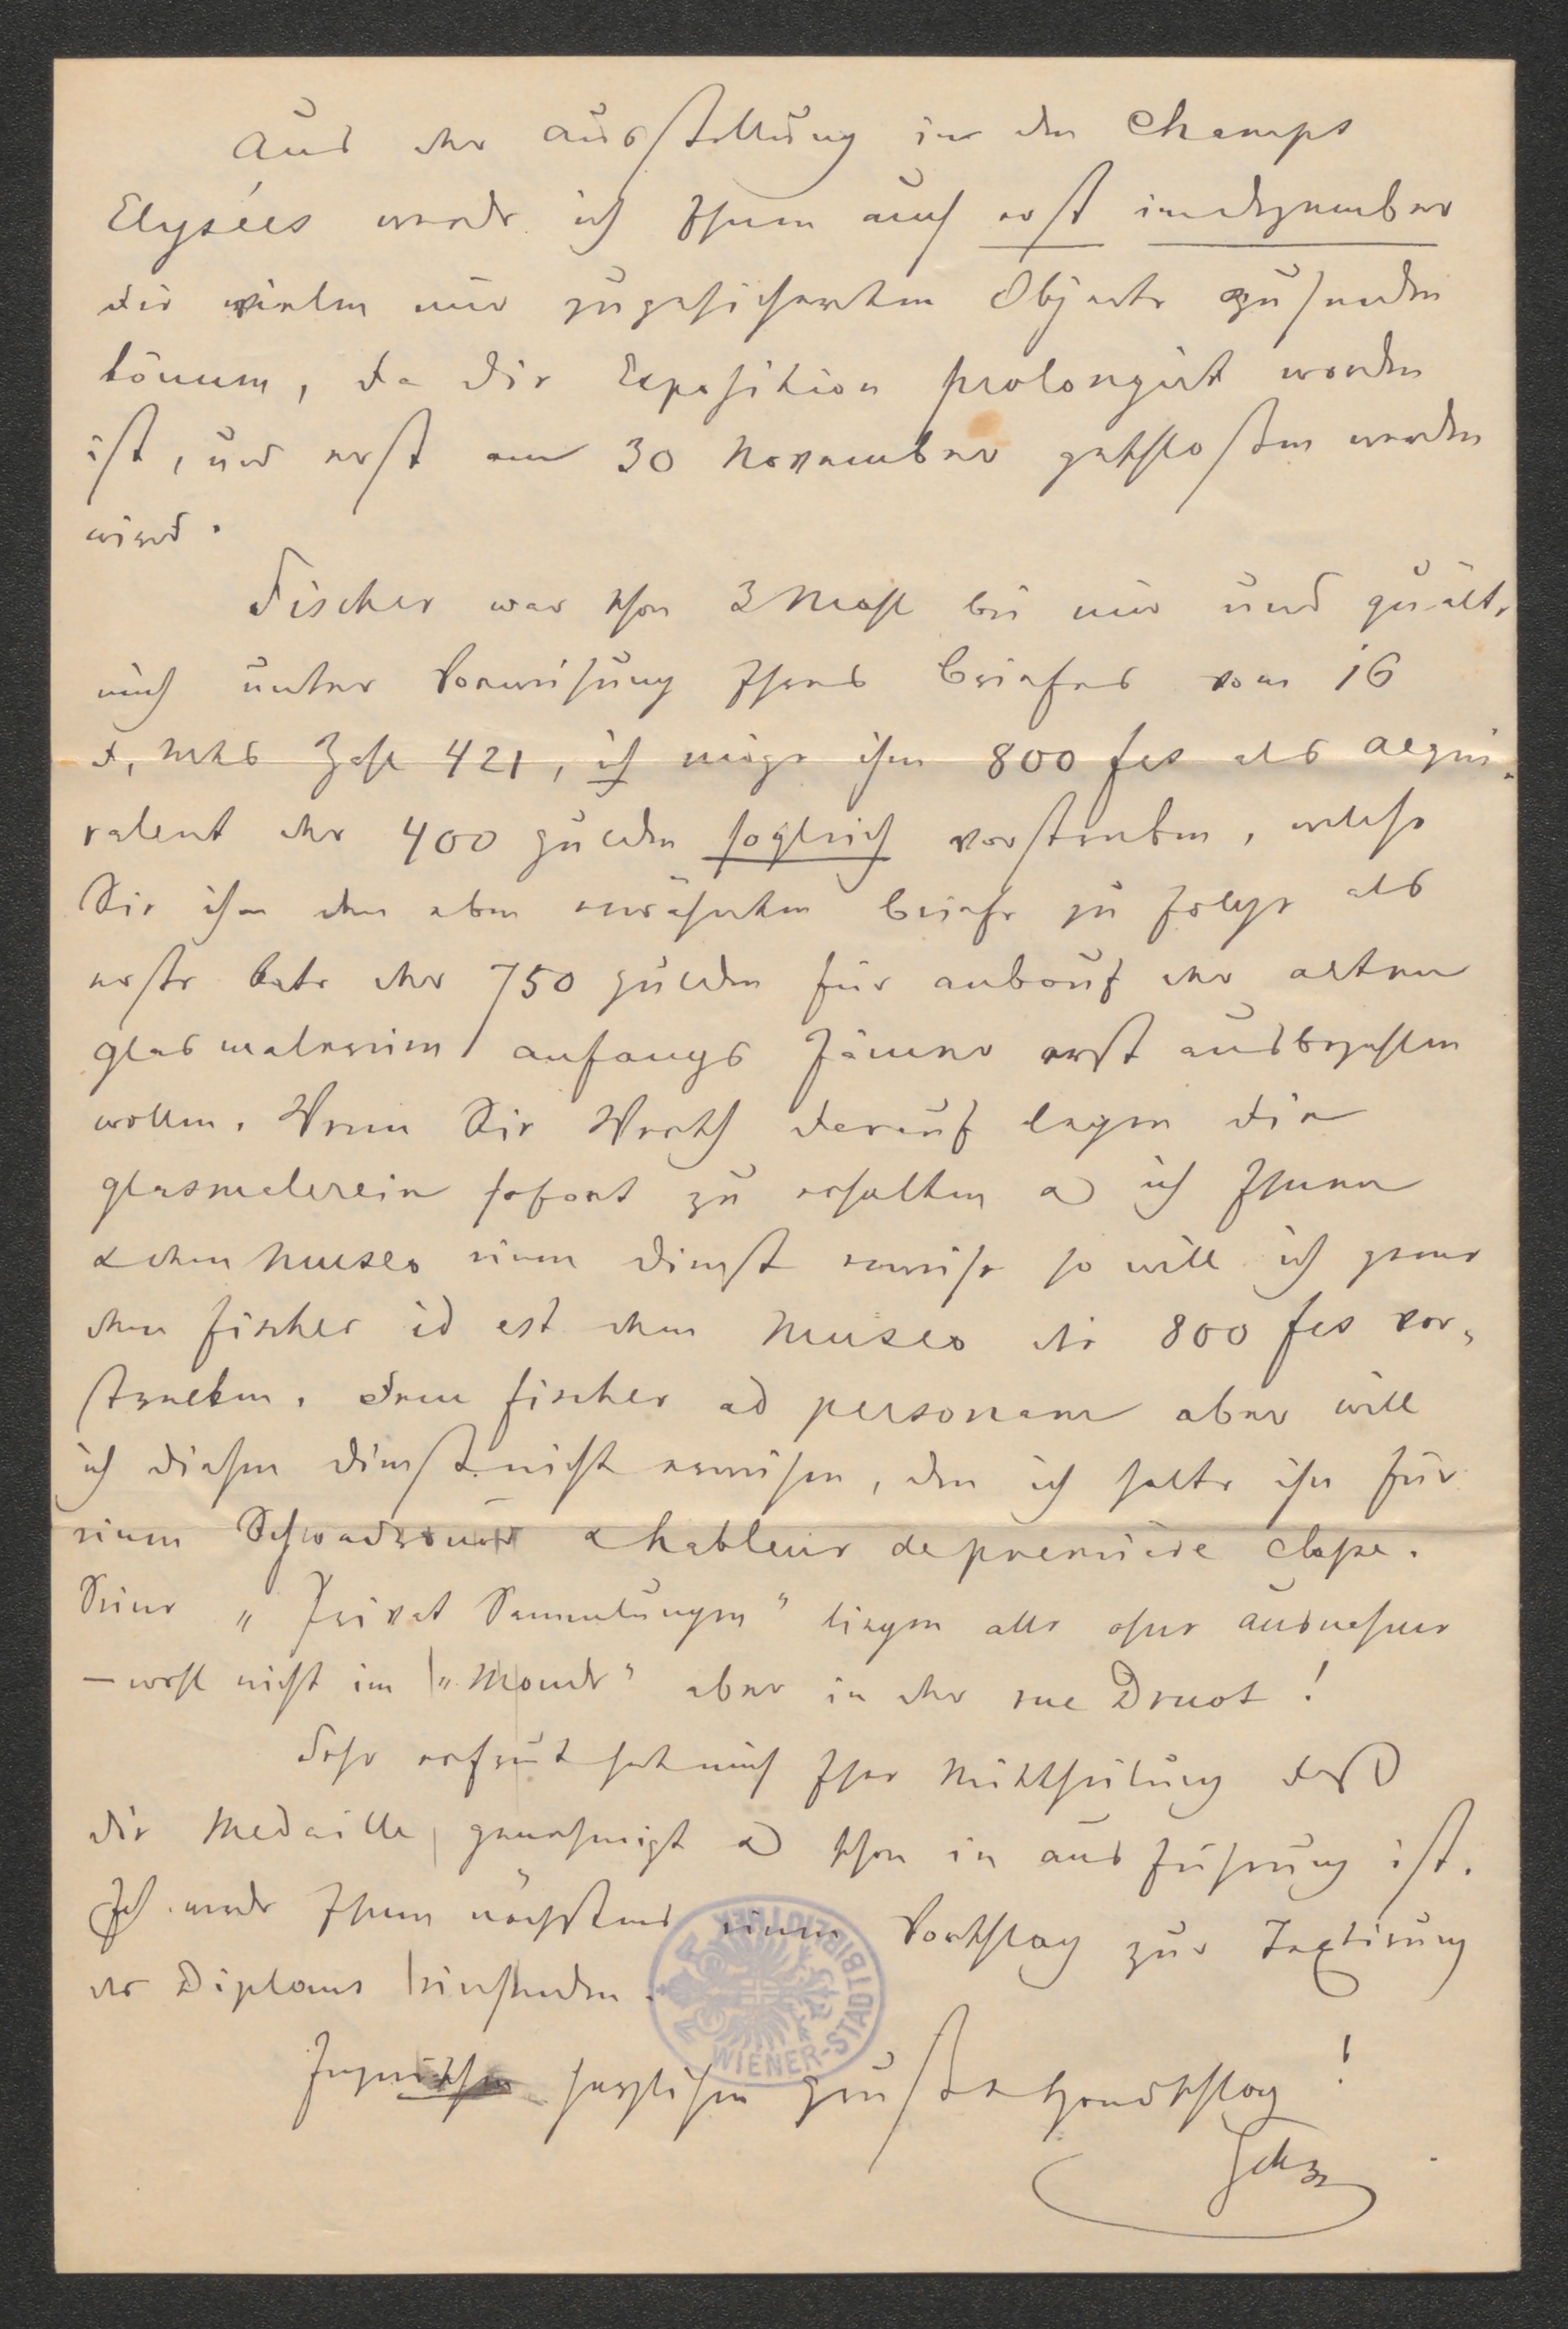 Aus der Ausstellung in den Champs
Elysées werde ich Ihnen auch erst im Dezember
die vielen mir zugesicherten Objecte zusenden
können, da die Exposition prolongirt worden
ist, und erst am 30 November geschlossen werden
wird.
Fischer war schon 3 Mahl bei mir und quält,
mich unter Vorweisung Ihres Briefes vom 16
d, Mts Zahl 421, ich möge ihm 800 fcs als Aequi-
valent der 400 Gulden sogleich vorstrecken, welche
Sie ihm dem oben erwähnten Briefe zu Folge als
erste Rate der 750 Gulden für Ankauf der alten
Glasmalereien anfangs Jänner erst ausbezahlen
wollen. Wenn Sie Werth darauf legen die
Glasmalerein sofort zu erhalten & ich Ihnen
& dem Museo einen Dienst erweise so will ich gerne
dem Fischer id est dem Museo die 800 fcs vor-
strecken. Dem Fischer ad personam aber will
ich diesen Dienst nicht erweisen, den ich halte ihn für
einen Schwadroneur & hableur de première classe.
Seine „Privat Sammlungen" liegen alle ohne Ausnahme
– wohl nicht im „Monde" aber in der rue Druot!
Sehr erfreut hat mich Ihre Mittheilung daß
die Medaille genehmigt & schon in Ausführung ist.
Ich werde Ihnen nächstens einen Vorschlag zur Textirung
des Diploms einsenden.
herzlichen Gruß & Handschlag!
WIENER-STADTBIBLIOTHEK